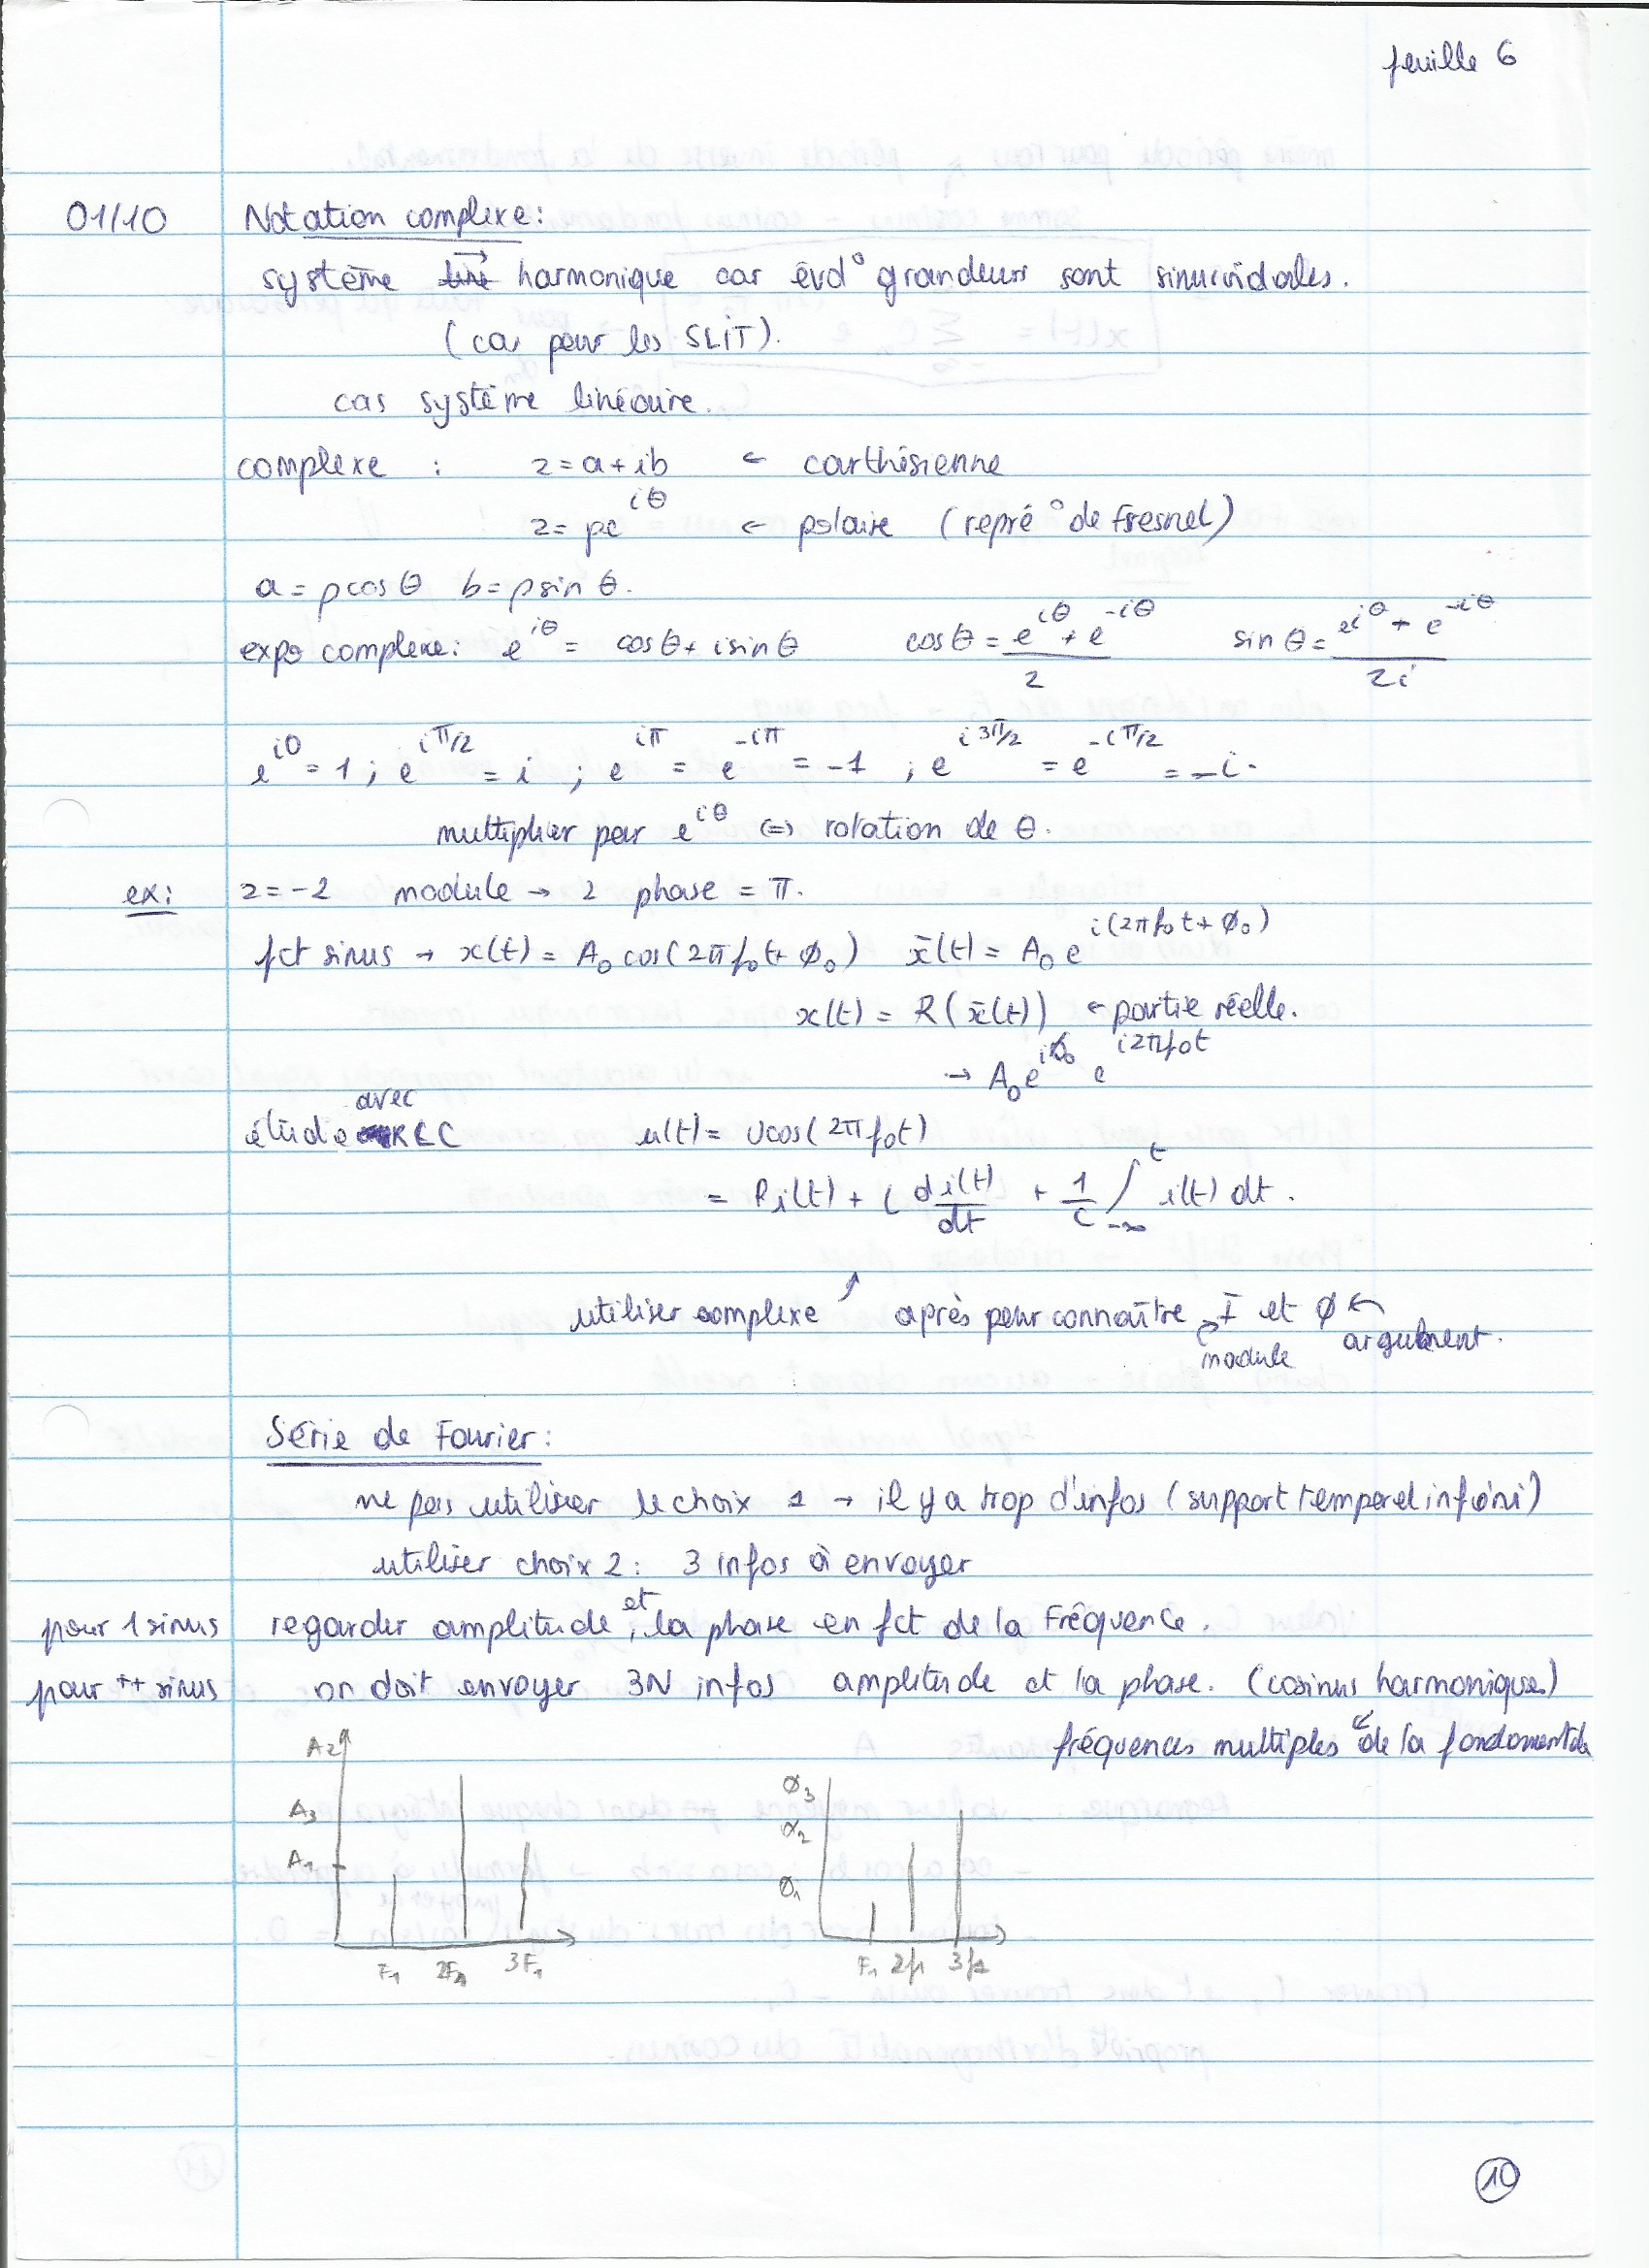 feuille 6
01/10 Notation complexe:
système harmonique car évd° grandeurs sont sinusoidales.
(car pour les SLIT).
cas système linéaire.
complexe : z = a + ib ← carthésienne
z = ρe^{iθ} ← polaire (repré° de Fresnel)
a = ρcos θ b = ρsin θ.
expo complexe: e^{iθ} = cosθ + isinθ cosθ = (e^{iθ} + e^{-iθ})/2 sinθ = (e^{iθ} + e^{-iθ})/2i
e^{i0} = 1 ; e^{iπ/2} = i ; e^{iπ} = e^{-iπ} = -1 ; e^{i3π/2} = e^{-iπ/2} = -i.
multiplier par e^{iθ} ⇔ rotation de θ.
ex: z = -2 module → 2 phase = π.
fct sinus → x(t) = A₀ cos(2πf₀t + Ø₀) x̄(t) = A₀ e^{i(2πf₀t + Ø₀)}
x(t) = R(x̄(t)) ← partie réelle.
→ A₀e^{iØ₀} e^{i2πf₀t}
étude avec RLC u(t) = Ucos(2πf₀t)
= Ri(t) + L di(t)/dt + 1/C ∫_{-∞}^{t} i(t) dt.
utiliser complexe ↑ après pour connaître I et Ø ←
module argument.
Série de Fourier:
ne pas utiliser le choix 1 → il y a trop d'infos (support temporel infini)
utiliser choix 2: 3 infos à envoyer
pour 1 sinus regarder amplitude et la phase en fct de la Fréquence.
pour ++ sinus on doit envoyer 3N infos amplitude et la phase. (cosinus harmonique)
fréquences multiples de la fondamentale
A₂ Ø₃
A₃ Ø₂
A₁ Ø₁
F₁ 2F₁ 3F₁ F₁ 2f₁ 3f₁
10